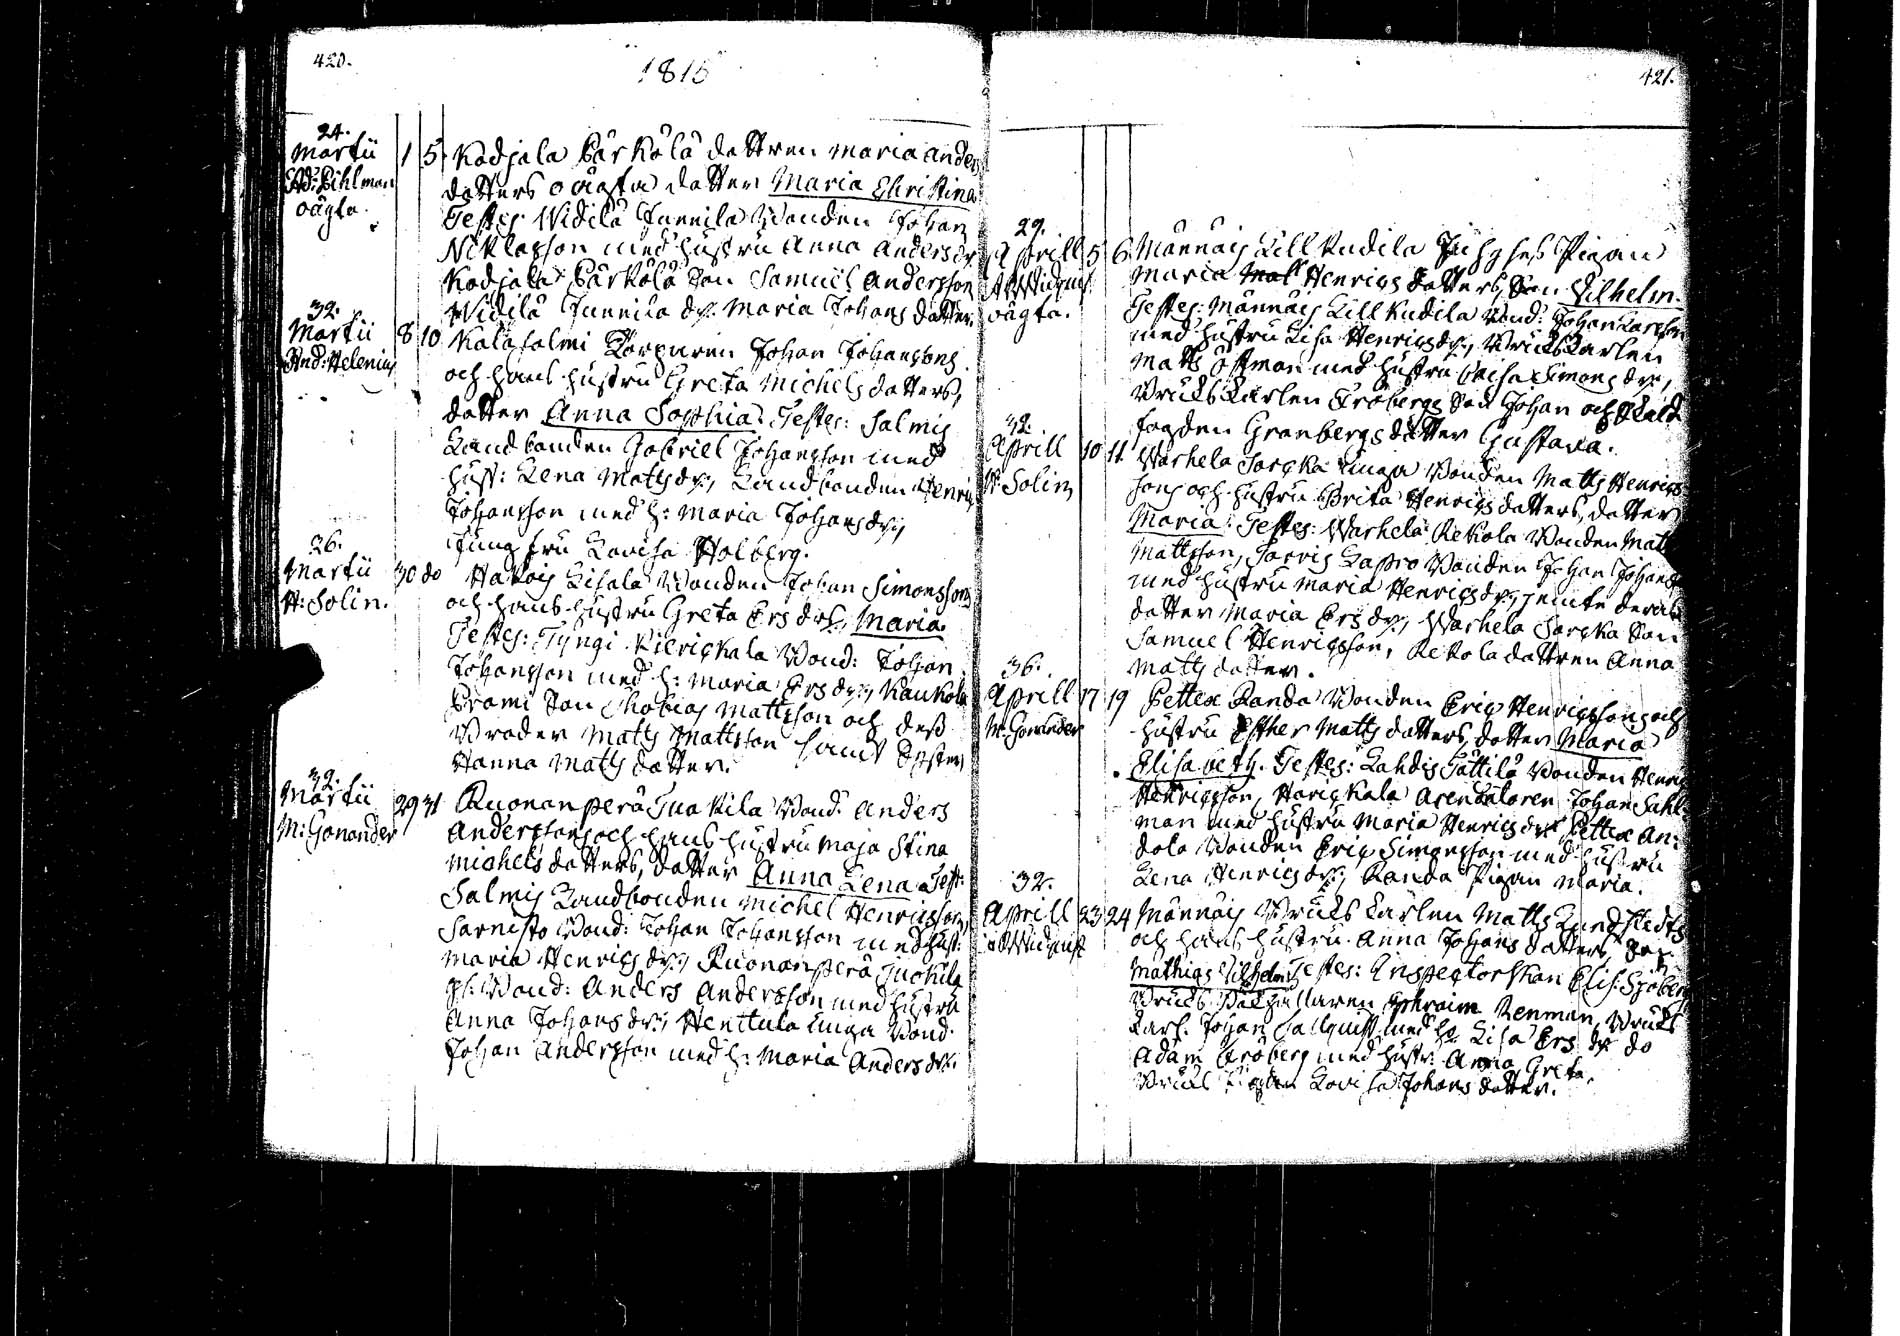 420.
1815
24.
Martii 1 5 Kadjala Pärkölä dottren Maria Anders
Ad: Pihlman dotters oägta dotter Maria Christina
oägta. Testes: Widilä Junnila Bonden Johan
Nicklasson med hustru Anna Andersdr
Kadjala Pärkölä Son Samuel Andersson
Widilä Junnila dr: Maria Johans dotter.
32.
Martii 8 10 Kalasalmi Torparen Johan Johanssons
And: Helenius och hans hustru Greta Michels dotters,
dotter Anna Sophia. Testes: Salmis
Landbonden Gabriel Johansson med
hust: Lena Mattsdr, Landbonden Henric
Johansson med h: Maria Johansdr,
Jungfru Lovisa Holberg.
26.
Martii 30 do Hakois Lisala Bonden Johan Simonssons
H: Solin. och hans hustru Greta Ersdrs, Maria.
Testes: Tyngi Bond: Johan
Johansson med h: Maria Ersdr,
Prami Son Thobias Mattsson och dess
Broder Matts Mattsson samt Syster
Hanna Matts dotter.
32.
Martii 29 31 Ruonanperä Juakila Bond: Anders
M: Ganander Anderssons och hans hustru Maja Stina
Michels dotters, dotter Anna Lena. Test:
Salmis Landbonden Michel Henricsson,
Sarvisto Bond: Johan Johansson med hust:
Maria Henricsdr, Ruonanperä Juakila
Bond: Anders Andersson med hustru
Anna Johansdr, Henttula Bond:
Johan Andersson med h: Maria Andersdr.
421.
29.
Aprill 5 6 Männäis Lill Kudila Inhyses Pigan
A: Widqvist Maria Henrics dotters, Son Vilhelm.
oägta. Testes: Männäis Lill Kudila Bond: Johan Larsson
med hustru Lisa Henricsdr, Bruks Karlen
Matts Östman med hustru Caisa Simonsdr,
Bruks Karlen Frobergs Son Johan och
fogden Granbergs dotter Gustava.
32.
Aprill 10 11 Warhela Bonden Matts Henrics
H: Solin sons och hustru Brita Henrics dotters, dotter
Maria: Testes: Warhela Rekola Bonden Matts
Mattsson, Bonden Johan Johansson
med hustru Maria Henricsdr, jemte deras
dotter Maria Ersdr, Warhela Son
Samuel Henricsson, Rekola dottren Anna
Matts dotter.
36.
Aprill 17 19 Pettex Randa Bonden Eric Henricssons och
M: Ganander hustru Esther Matts dotters, dotter Maria
Elisabeth. Testes: Lahdis Pättilä Bonden Henric
Henricsson, Arendatoren Johan Sahl-
man med hustru Maria Henricsdr Pettex An-
dola Bonden Eric Simonsson med hustru
Lena Henricsdr, Randa Pigan Maria.
32.
Aprill 23 24 Männäis Bruks Karlen Matts Lundstedts
A: Widqvist och hans hustru Anna Johans dotters, Son
Mathias Vilhelm. Testes: Inspectorskan Elis: Sjöberg
Bruks Bokhållaren Ephraim Renman, Bruks
Karl. Johan Sallqvist med h: Lisa Ers dr do
Adam Froberg med hustr: Anna Greta,
Bruks Pigan Lovisa Johans dotter.